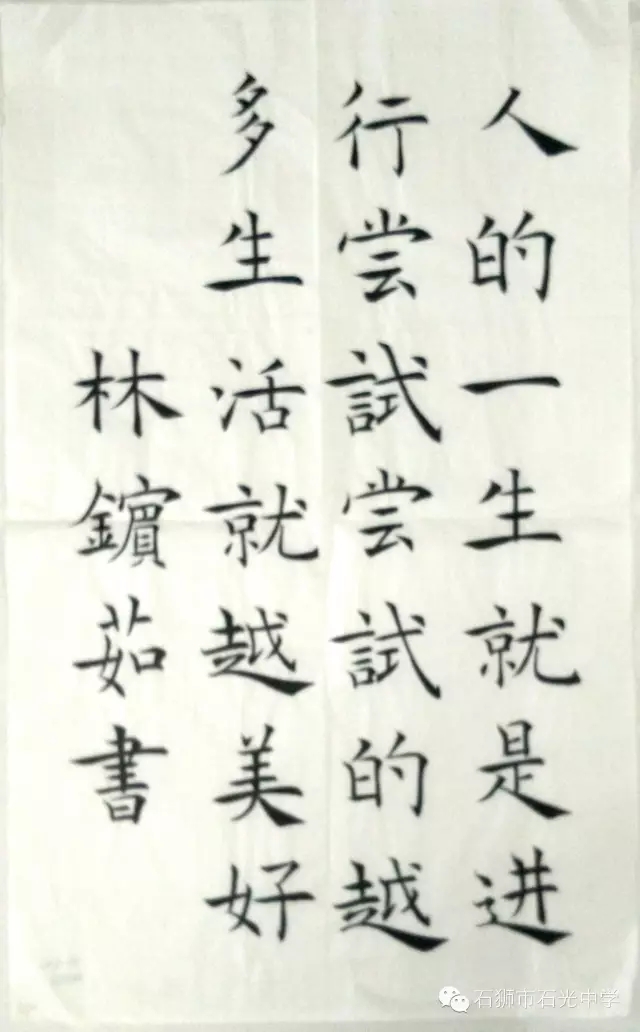 人的一生就是进
行尝試尝試的越
多生活就越美好
林鑌茹書
石狮市石光中学